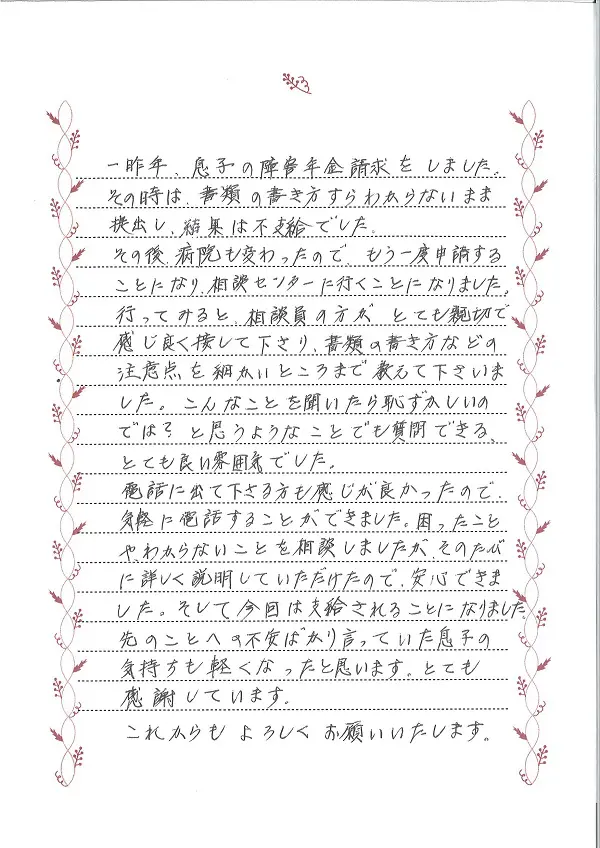 一昨年、息子の障害年金請求をしました。
その時は、書類の書き方すらわからないまま
提出し、結果は不支給でした。
その後、病院も変わったので、もう一度申請する
ことになり、相談センターに行くことになりました。
行ってみると、相談員の方が、とても親切で
感じ良く接して下さり、書類の書き方などの
注意点を細かいところまで教えて下さいま
した。こんなことを聞いたら恥ずかしいの
では？と思うようなことでも質問できる、
とても良い雰囲気でした。
電話に出て下さる方も感じが良かったので、
気軽に電話することができました。困ったこと
やわからないことを相談しましたが、そのたび
に詳しく説明していただけたので、安心できま
した。そして今回は支給されることになりました。
先のことへの不安ばかり言っていた息子の
気持ちも軽くなったと思います。とても
感謝しています。
これからもよろしくお願いいたします。